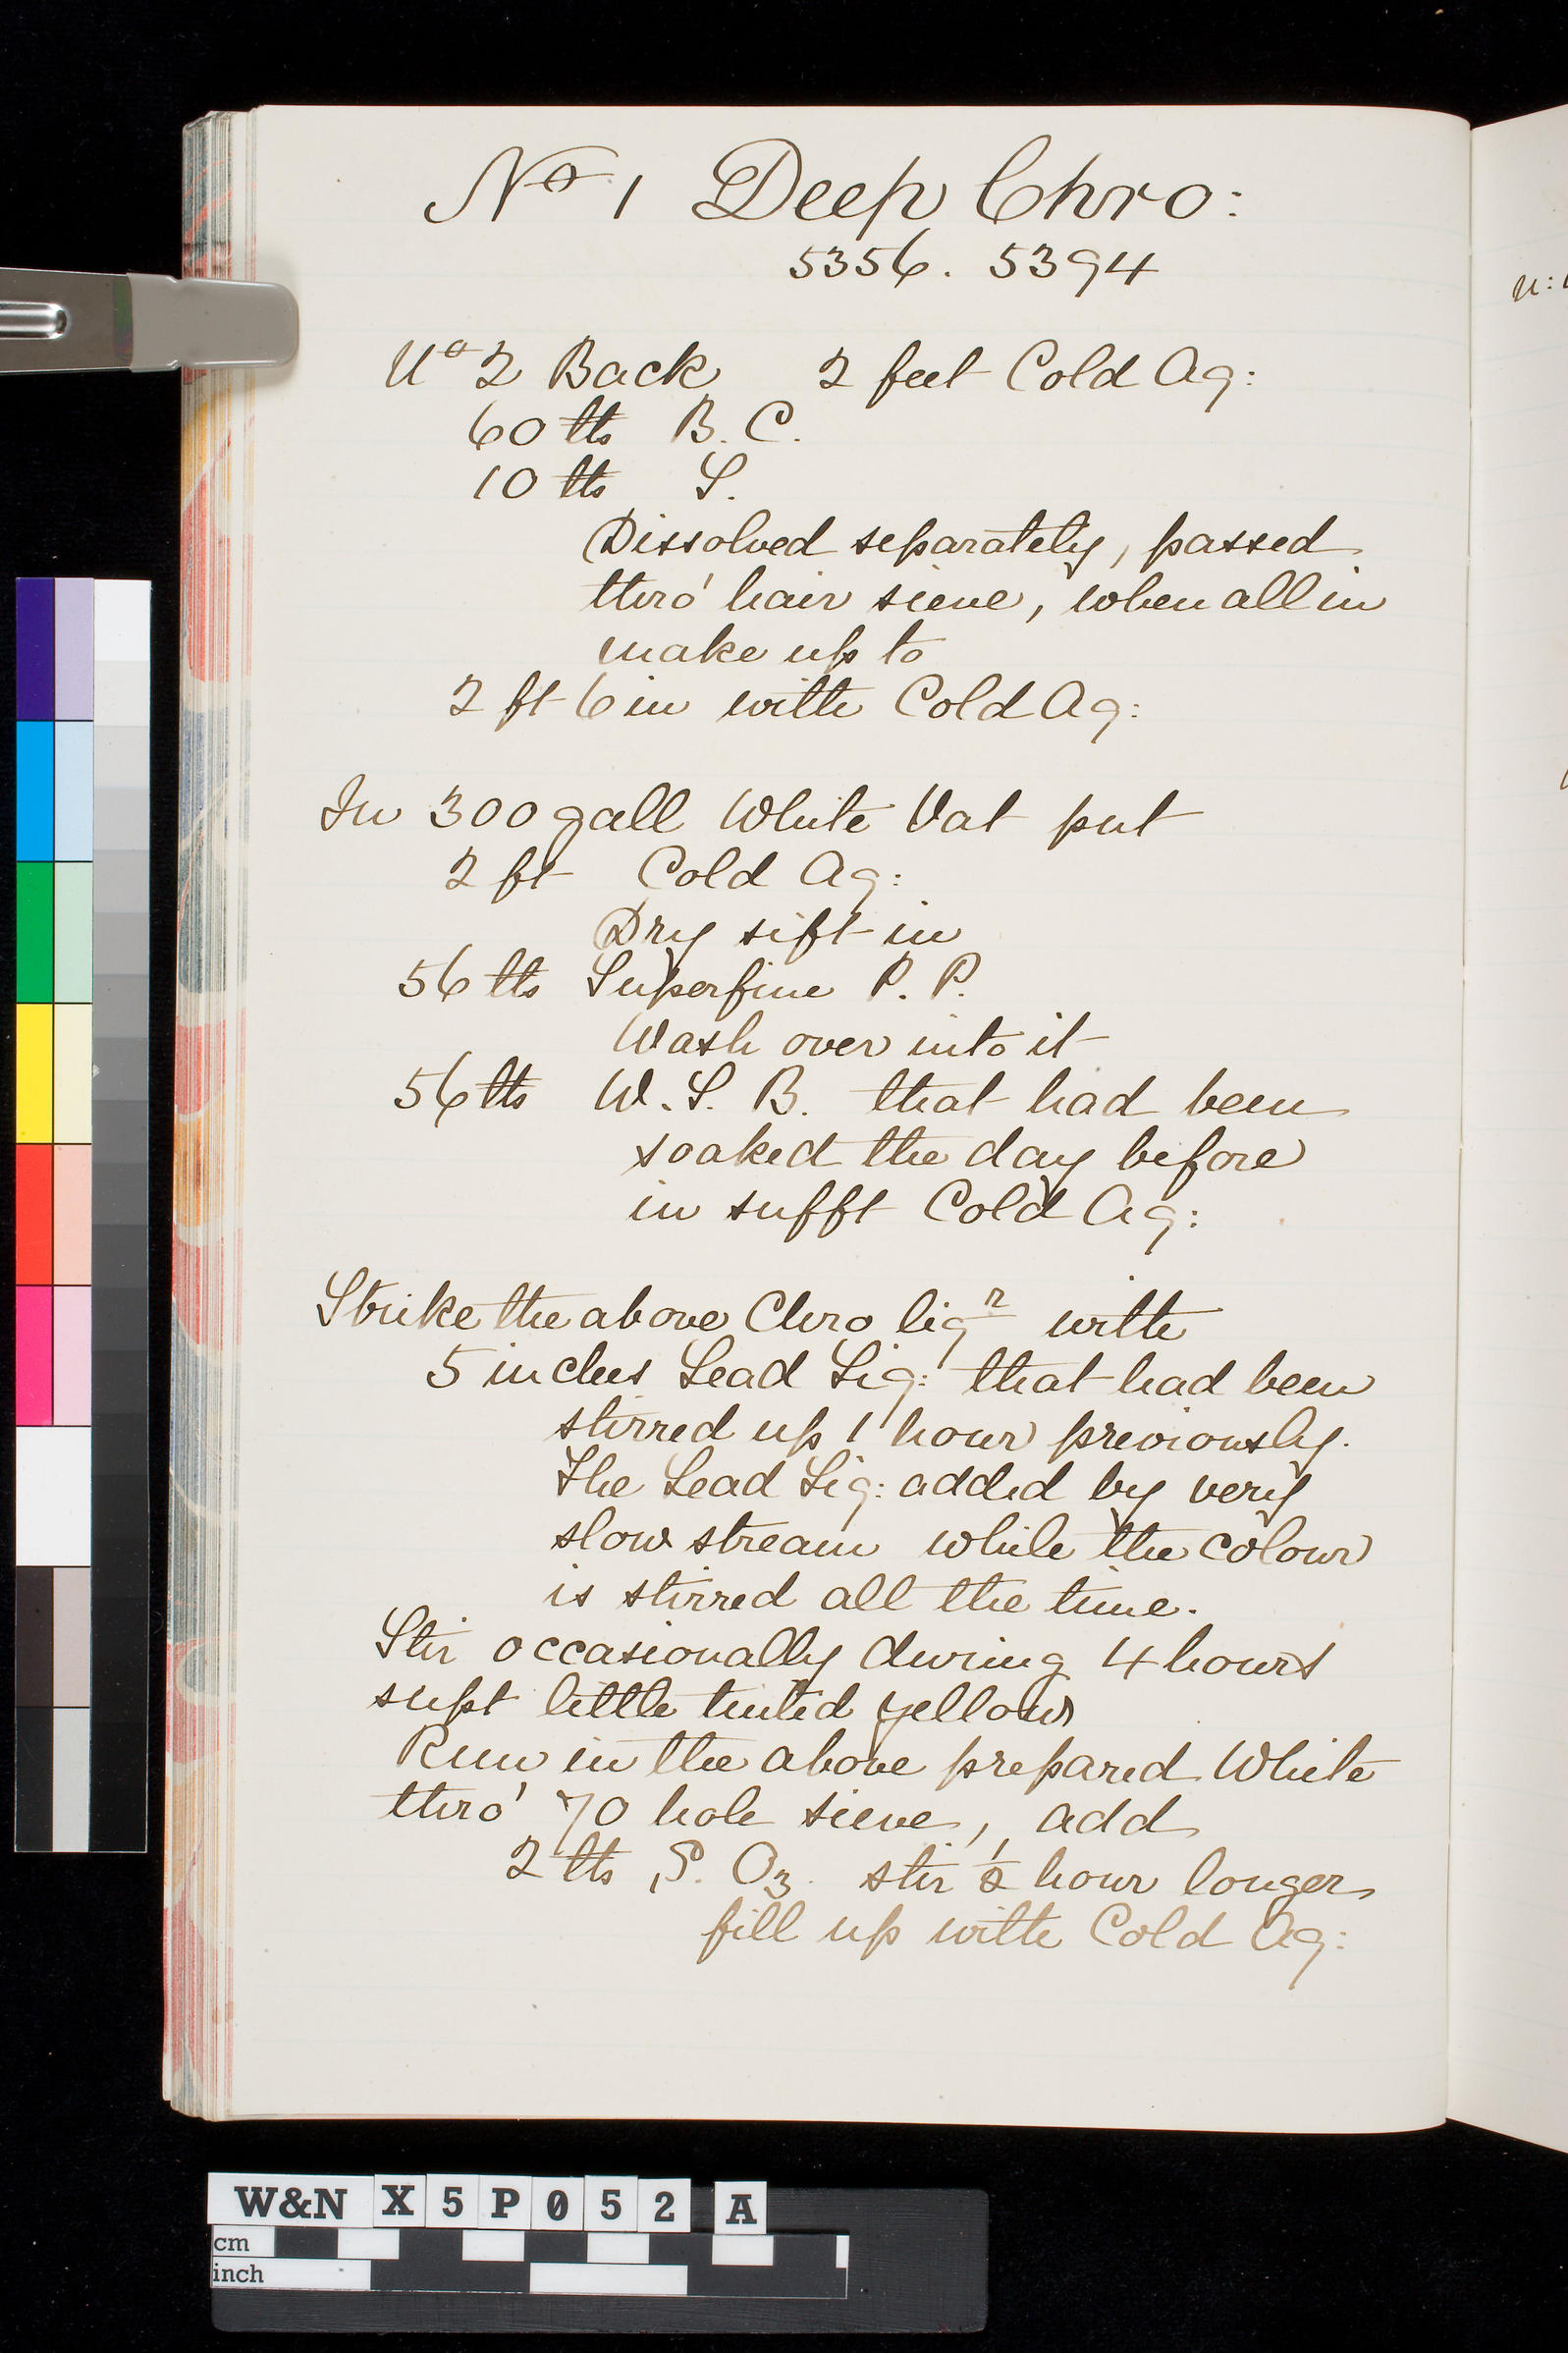 No 1 Deep Chro:
5356. 5394
No 2 Back 2 feet Cold Aq:
60 lbs B. C.
10 lbs S.
Dissolved separately, passed
thro' hair sieve, when all in
make up to
2 ft 6 in with Cold Aq:
In 300 gall White Vat put
2 ft Cold Aq:
Dry sift in
56 lbs Superfine P. P.
Wash over into it
56 lbs W. S. B. that had been
soaked the day before
in sufft Cold Aq:
Strike the above Chro liqr with
5 inches Lead Liq: that had been
stirred up 1 hour previously.
The Lead Liq: added by very
slow stream while the colour
is stirred all the time.
Stir occasionally during 4 hours
supt little tinted yellow
Run in the above prepared White
thro' 70 hole sieve, add
2 lbs S. Oz. stir ½ hour longer
fill up with Cold Aq:
W&N X5P052 A
cm
inch